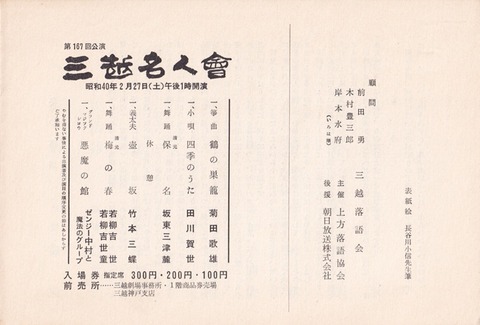 表紙絵 長谷川小信先生筆
三越落語会
主催 上方落語協会
後援 朝日放送株式会社
顧問
前田勇
木村豊三郎
岸本水府
(いろは順)
第167回公演
三越名人會
昭和40年2月27日(土)午後1時開演
一、箏曲 鶴の巣籠 菊田歌雄
一、小唄 四季のうた 田川賀世
一、舞踊 清元 保名 坂東三津麓
休憩
一、舞踊 清元 梅の春 若柳吉世 若柳吉世童
一、義太夫 壺坂 竹本三蝶
一、グランド・マジック・ショウ 悪魔の館 ゼンジー中村と魔法のグループ
やむを得ない事情による出演者及び演目の順序変更の節はあしからずご了承願います
入場券 指定席 300円・200円・100円
前売所 ……三越劇場事務所・1階商品券売場
三越神戸支店